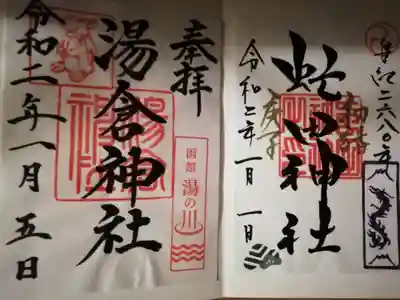 皇紀二六八〇年
虻田神社
庚子
令和二年一月一日
奉拝
函館 湯の川
湯倉神社
令和二年一月五日